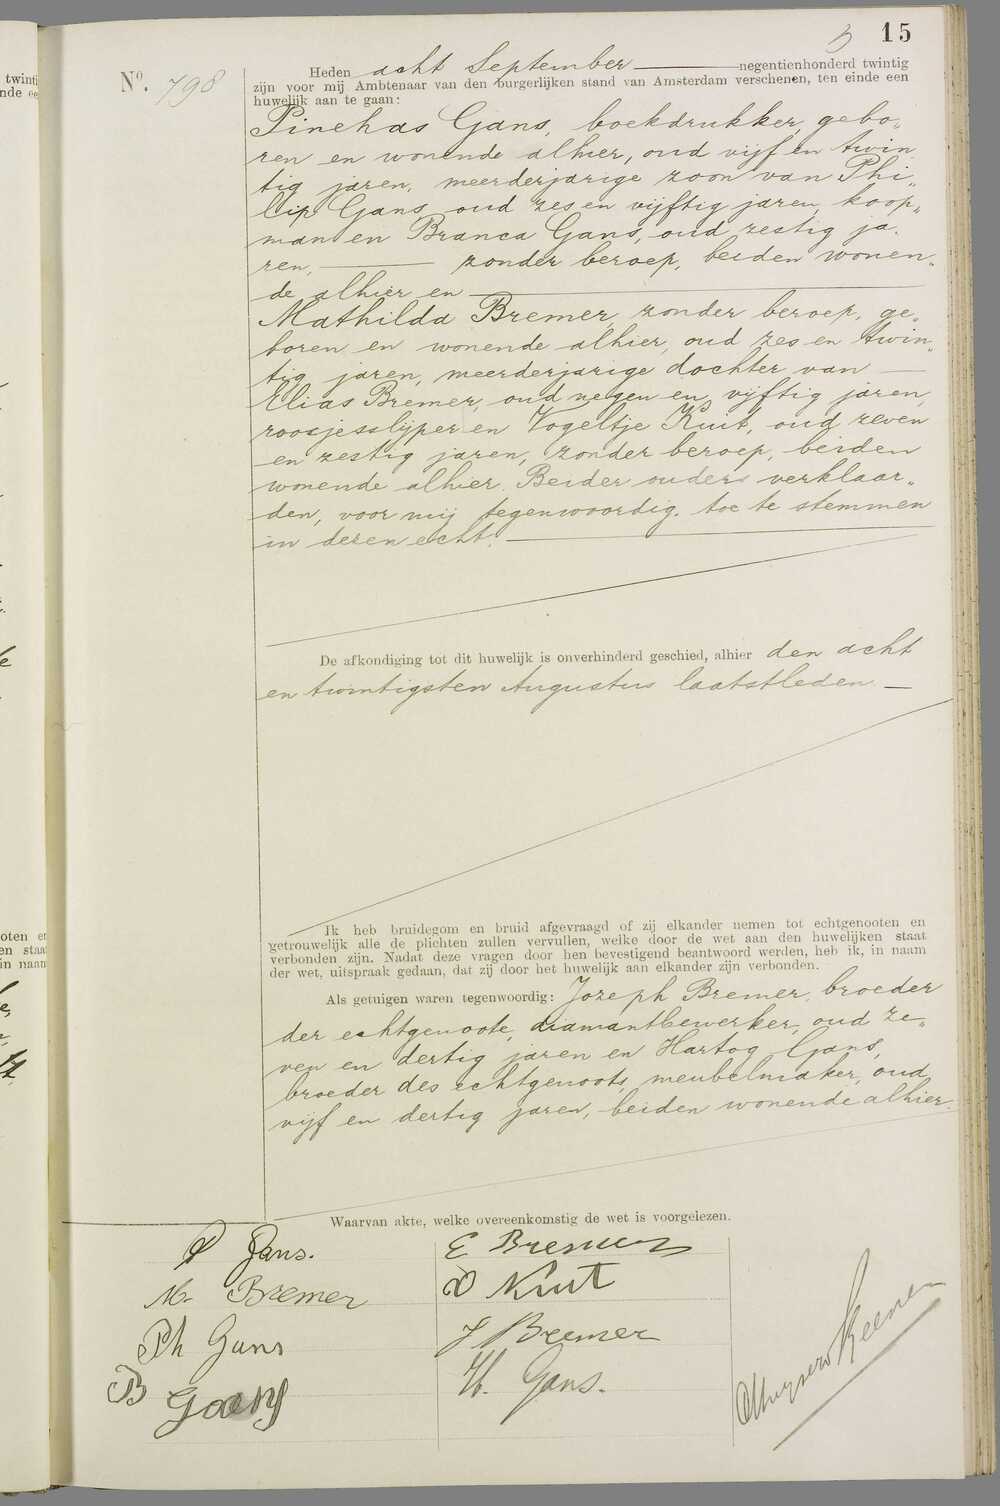 B 15
Nº. 798
Heden acht September negentienhonderd twintig
zijn voor mij Ambtenaar van den burgerlijken stand van Amsterdam verschenen, ten einde een
huwelijk aan te gaan:
Pinehas Gans, boekdrukker, gebo„
ren en wonende alhier, oud vijf en twin
tig jaren, meerderjarige zoon van Phi„
lip Gans oud zes en vijftig jaren, koop„
man en Branca Gans, oud zestig ja„
ren, zonder beroep, beiden wonen„
de alhier en
Mathilda Bremer, zonder beroep, ge„
boren en wonende alhier, oud zes en twin„
tig jaren, meerderjarige dochter van
Elias Bremer, oud negen en vijftig jaren,
roosjesslijper en Vogeltje Kuit, oud zeven
en zestig jaren, zonder beroep, beiden
wonende alhier. Beider ouders verklaar„
den, voor mij tegenwoordig, toe te stemmen
in deren echt.
De afkondiging tot dit huwelijk is onverhinderd geschied, alhier den acht
en twintigsten Augustus laatstleden
Ik heb bruidegom en bruid afgevraagd of zij elkander nemen tot echtgenooten en
getrouwelijk alle de plichten zullen vervullen, welke door de wet aan den huwelijken staat
verbonden zijn. Nadat deze vragen door hen bevestigend beantwoord werden, heb ik, in naam
der wet, uitspraak gedaan, dat zij door het huwelijk aan elkander zijn verbonden.
Als getuigen waren tegenwoordig: Jozeph Bremer, broeder
der echtgenoote, diamantbewerker, oud ze„
ven en dertig jaren en Hartog Gans,
broeder des echtgenoots, meubelmaker, oud
vijf en dertig jaren, beiden wonende alhier.
Waarvan akte, welke overeenkomstig de wet is voorgelezen.
P Gans.
M. Bremer
Ph Gans
B Gans
E Bremer
V Kuit
J Bremer
H. Gans.